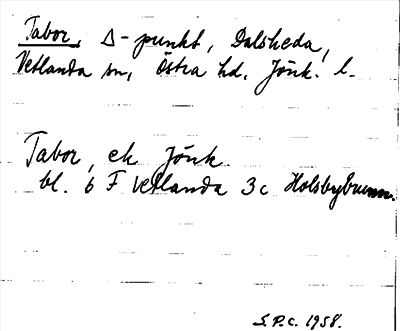 Tabor, Δ-punkt, Dalsheda,
Vetlanda sn, Östra hd, Jönk. l.
Tabor, ek Jönk.
bl. 6 F Vetlanda 3c Holsbybrunn.
S.P.C. 1958.